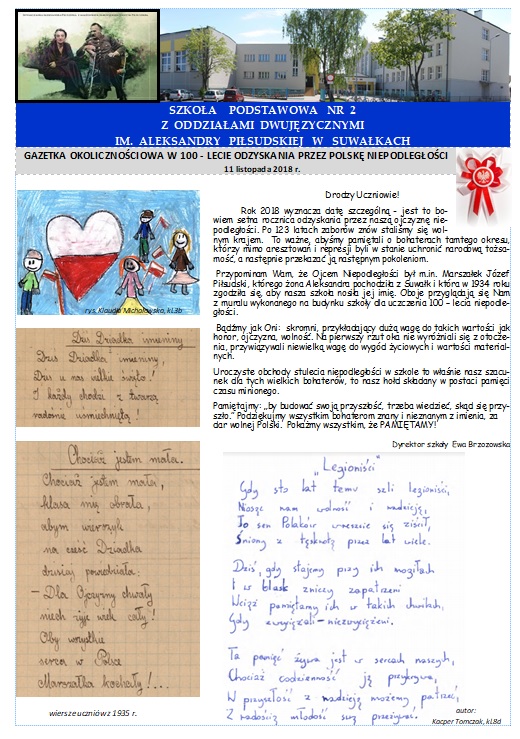 SZKOŁA PODSTAWOWA NR 2
Z ODDZIAŁAMI DWUJĘZYCZNYMI
IM. ALEKSANDRY PIŁSUDSKIEJ W SUWAŁKACH
GAZETKA OKOLICZNOŚCIOWA W 100 - LECIE ODZYSKANIA PRZEZ POLSKĘ NIEPODLEGŁOŚCI
11 listopada 2018 r.
rys. Klaudia Michałowska, kl.3b
Dziś Dziadka imieniny
Dziś Dziadka imieniny,
Dziś u nas wielkie święto!
I każdy chodzi z twarzą
radośnie uśmiechniętą!
Chociaż jestem mała.
Chociaż jestem mała,
klasa mię obrała,
abym wierszyk
na cześć Dziadka
dzisiaj powiedziała:
- Dla Ojczyzny chwały
niech żyje wiek cały!
Oby wszystkie
serca w Polsce
Marszałka kochały!...
wiersze uczniów z 1935 r.
Drodzy Uczniowie!
Rok 2018 wyznacza datę szczególną - jest to bo-
wiem setna rocznica odzyskania przez naszą ojczyznę nie-
podległości. Po 123 latach zaborów znów staliśmy się wol-
nym krajem. To ważne, abyśmy pamiętali o bohaterach tamtego okresu,
którzy mimo aresztowań i represji byli w stanie uchronić narodową tożsa-
mość, a następnie przekazać ją następnym pokoleniom.
Przypominam Wam, że Ojcem Niepodległości był m.in. Marszałek Józef
Piłsudski, którego żona Aleksandra pochodziła z Suwałk i która w 1934 roku
zgodziła się, aby nasza szkoła nosiła jej imię. Oboje przyglądają się Nam
z muralu wykonanego na budynku szkoły dla uczczenia 100 – lecia niepodle-
głości.
Bądźmy jak Oni: skromni, przykładający dużą wagę do takich wartości jak
honor, ojczyzna, wolność. Na pierwszy rzut oka nie wyróżniali się z otocze-
nia, przywiązywali niewielką wagę do wygód życiowych i wartości material-
nych.
Uroczyste obchody stulecia niepodległości w szkole to właśnie nasz szacu-
nek dla tych wielkich bohaterów, to nasz hołd składany w postaci pamięci
czasu minionego.
Pamiętajmy: „by budować swoją przyszłość, trzeba wiedzieć, skąd się przy-
szło.” Podziękujmy wszystkim bohaterom znany i nieznanym z imienia, za
dar wolnej Polski. Pokażmy wszystkim, że PAMIĘTAMY!
Dyrektor szkoły Ewa Brzozowska
„Legioniści”
Gdy sto lat temu szli legioniści,
Niosąc nam wolność i nadzieję,
To sen Polaków wreszcie się ziścił,
Śniony z tęsknotą przez lat wiele.
Dziś, gdy stajemy przy ich mogiłach
I w blask zniczy zapatrzeni
Wciąż pamiętamy ich w takich chwilach,
Gdy zwyciężali - niezwyciężeni.
Ta pamięć żywa jest w sercach naszych,
Chociaż codzienność ją przykrywa,
W przyszłość z nadzieją możemy patrzeć,
Z radością młodość swą przeżywać.
autor:
Kacper Tomczak, kl.8d